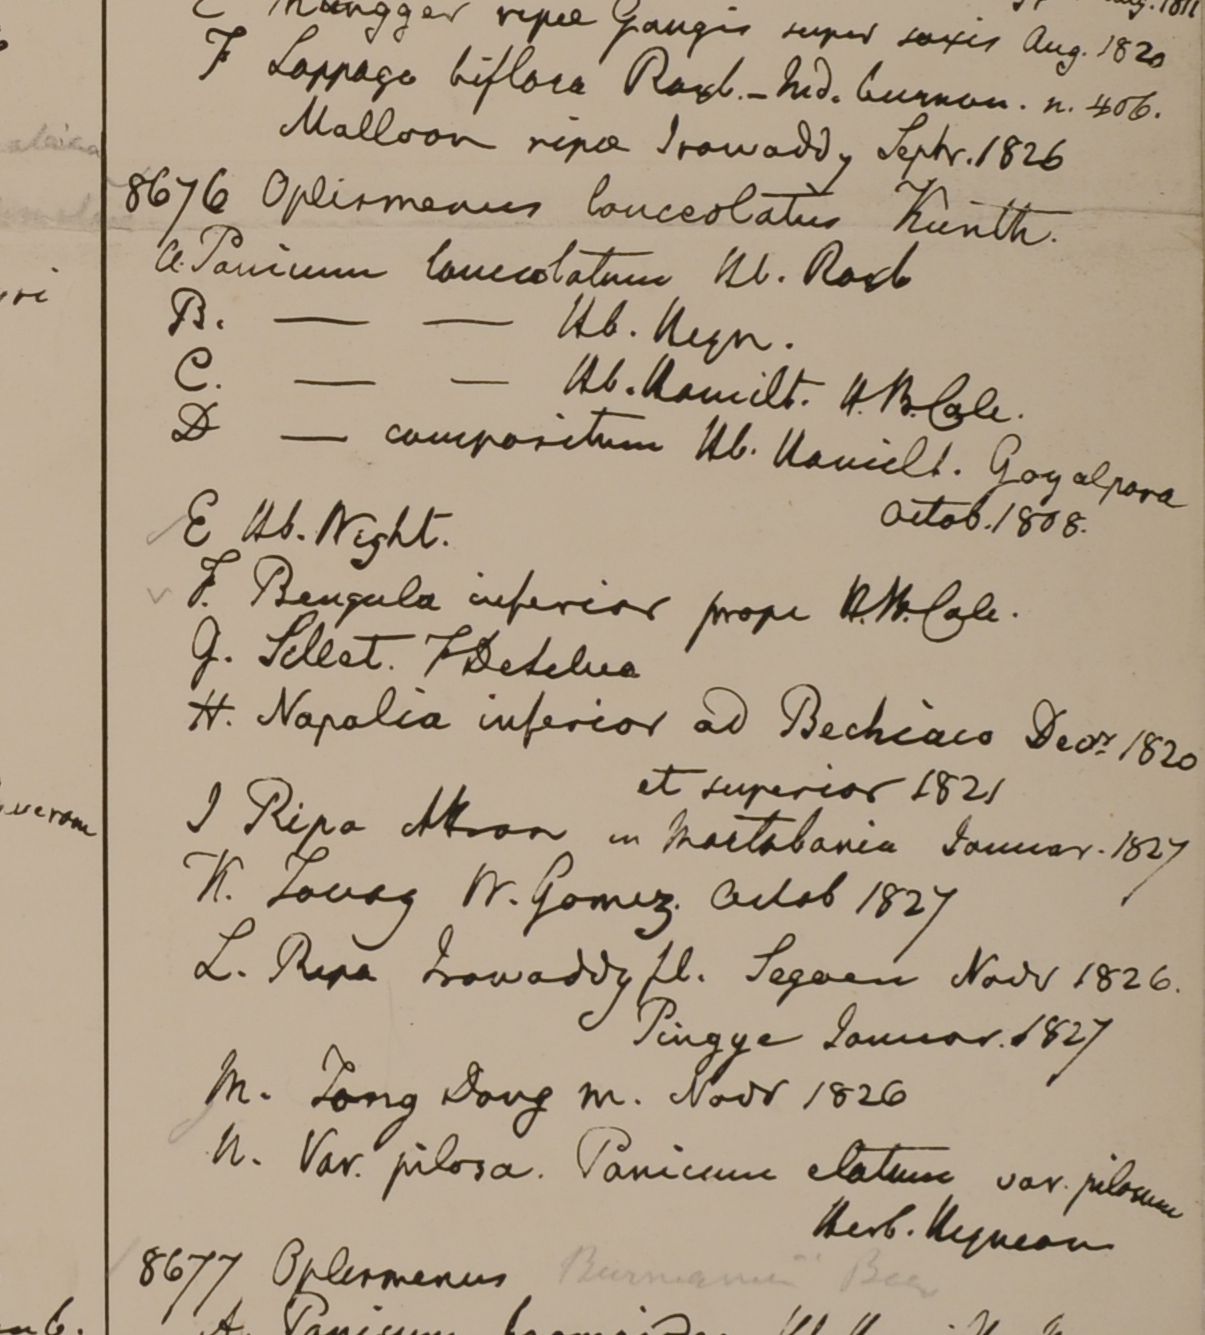 ripæ Gangis super saxis Aug. 1820
F Lappago biflora Roxb. - Ind. n. 406.
Malloon ripæ Irawaddy Septr. 1826
8676 Oplismenus lanceolatus Kunth.
a. Panicum lanceolatum Hb. Roxb
B. — — Hb. Heyn.
C. — — Hb. Hamilt. H.B. Calc.
D — compositum Hb. Hamilt. Goyalpara
Octob. 1808.
E Hb. Wight.
F. Bengala inferior prope H.B. Calc.
G. Sillet. F De Silva
H. Napalia inferior ad Bechiaco Decr. 1820
et superior 1821
I Ripa Attran in Martabania Januar. 1827
K. Tavoy W. Gomez. Octob 1827
L. Ripa Irawaddy fl. Segaen Novr 1826.
Pingye Januar. 1827
M. Tong Dong m. Novr 1826
N. Var. pilosa. Panicum elatum var. pilosum
Herb. Heynean
8677 Oplismenus Burmanni Beauv
A. Panicum